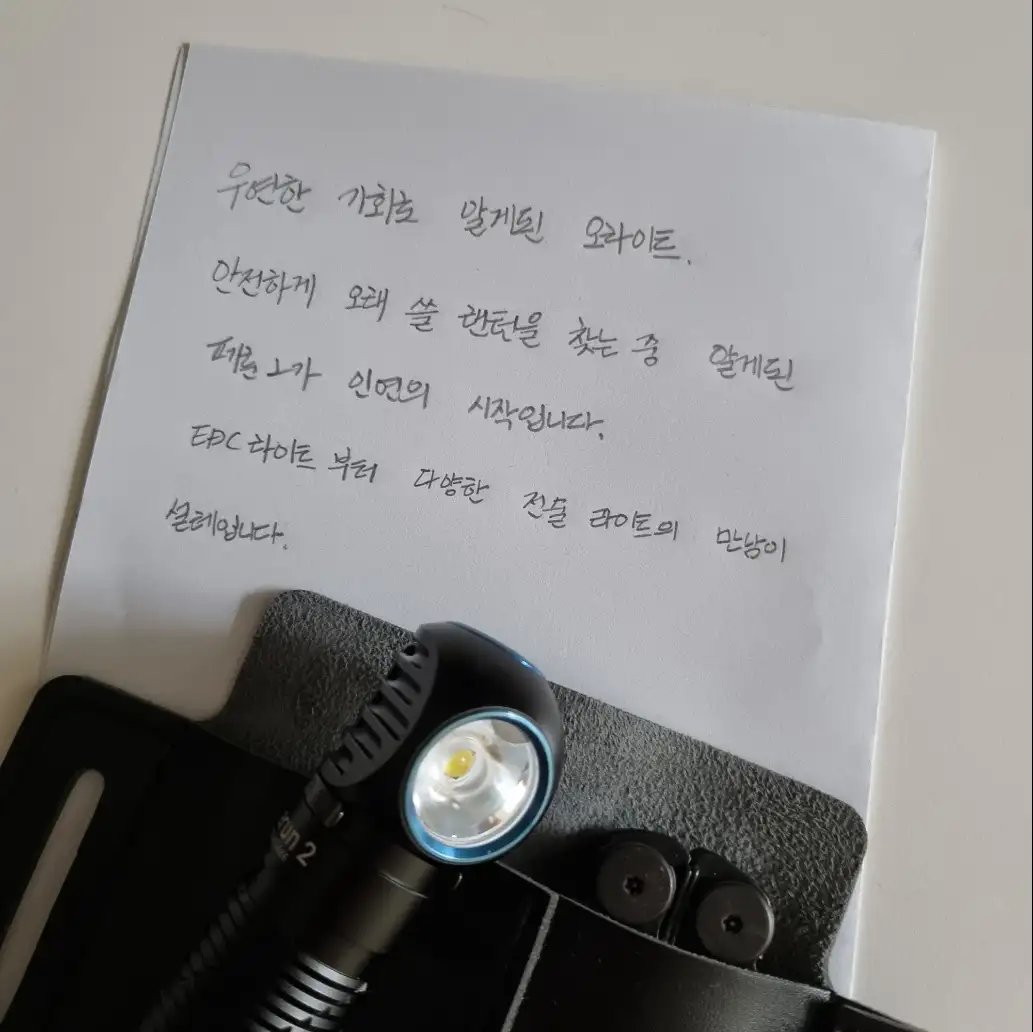 우연한 기회로 알게된 오라이트.
안전하게 오래 쓸 랜턴을 찾는 중 알게된
페룬2가 인연의 시작입니다.
EDC라이트부터 다양한 전술 라이트의 만남이
설레입니다.
run 2